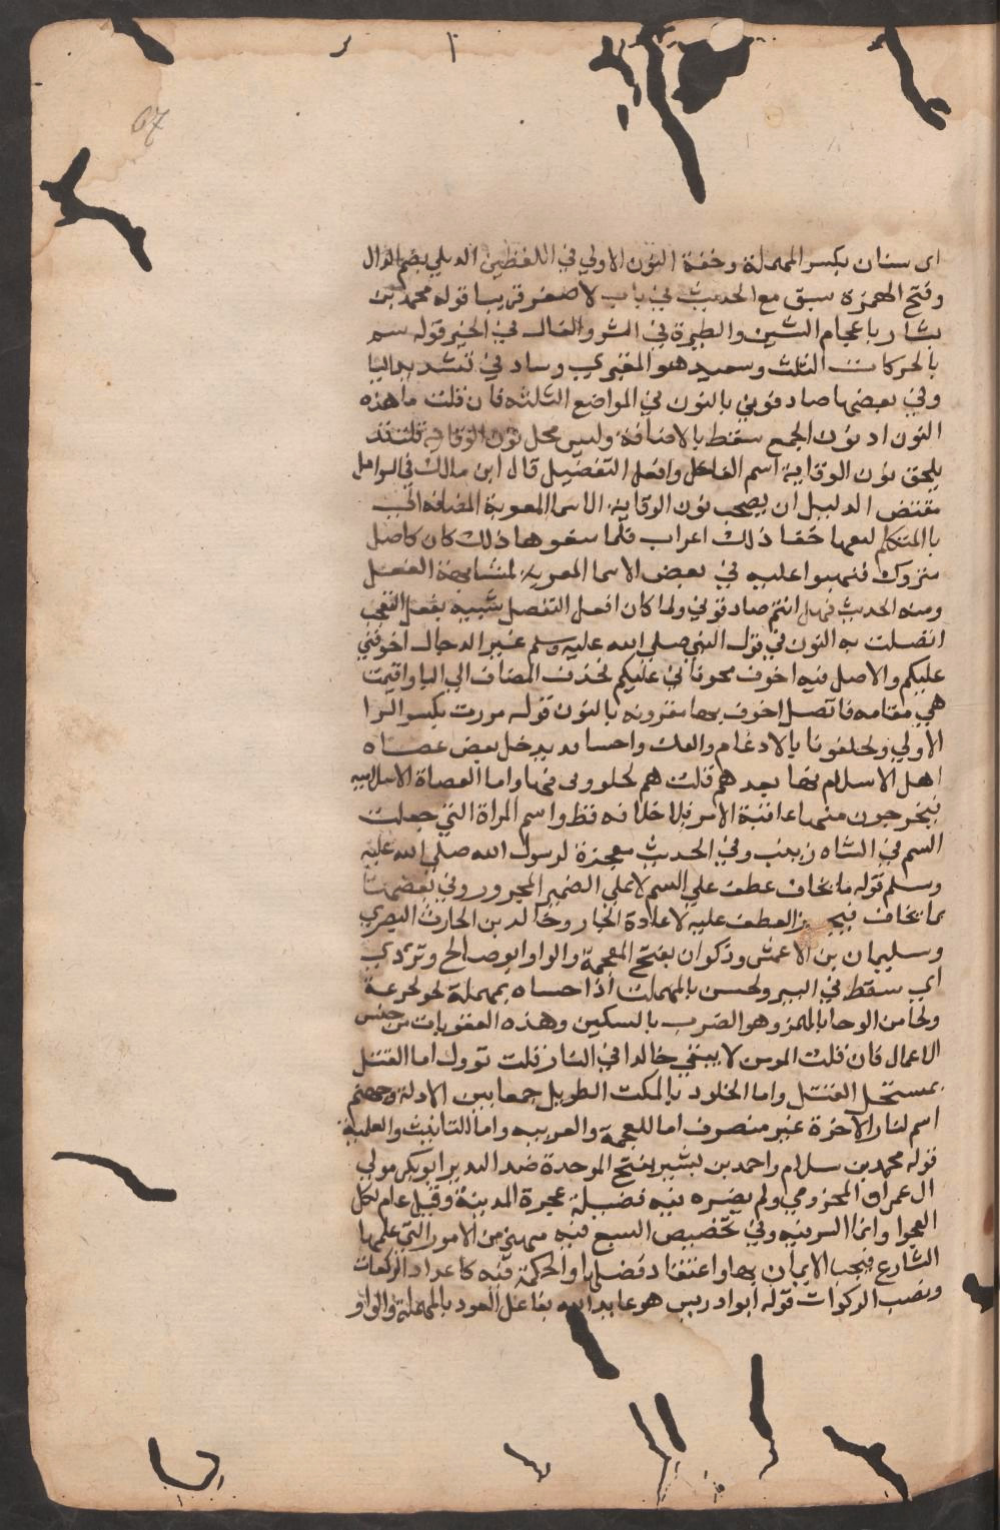 67
ابى سنان بكسر المهملة وخفة النون الاولي في اللفظين الديلي بضم الدال
وفتح الهمزة سبق مع الحديث في باب لا صفر قريبا قوله محمد بن
بشار باعجام الشين والطيرة في الشر والفال في الخير قوله سم
بالحركات الثلث وسعيد هو المقبري وصادقي بتشديد اليا
وفي بعضها صادقوني بالنون في المواضع الثلثه فان قلت ما هذه
النون اذ نون الجمع سقط بالاضافة وليس محل نون الوقاية قلت قد
يلحق نون الوقاية اسم الفاعل وافعل التفضيل قال ابن مالك في
مقتضى الدليل ان يصحب نون الوقاية الاسما المعربة المضافة الى
يا المتكلم ليقيها خفا ذلك اعراب فلما منعوها ذلك كان كاصل
متروك فنبهوا عليه في بعض الاسما المعربة لمشابهة الفعل
ومنه الحديث فهل انتم صادقوني ولما كان افعل التفضيل شبيه بفعل التعجب
اتصلت به النون في قول النبي صلى الله عليه وسلم غير الدجال اخوفني
عليكم والاصل فيه اخوف مخوفاتي عليكم فحذف المضاف الي اليا واقيمت
هي مقامه فاتصل اخوف بها مقرونه بالنون قوله مررت بكسر الرا
الاولي وتخلفونا بالادغام والفك واخسا قد يدخل بعض عصاه
اهل الاسلام فيها بعدهم قلت هم يخلدون فيها واما العصاة الاسلاميه
فيخرجون منها عاقبة الامر فلا خلافه قط واسم المراة التي جعلت
السم في الشاه زينب وفي الحديث معجزة لرسول الله صلي الله عليه
وسلم قوله ما يخاف عطف علي السم لا علي الضمير المجرور وفي بعضها
بما يخاف فيجوز العطف عليه لاعادة الجار وخالد بن الحارث البصري
وسليمان بن الاعمش وذكوان بفتح المعجمة والواو ابو صالح وتردي
اي سقط في البير وتحسى بالمهملتين اذا حساه بمهملة نحو تجرعة
ويجا من الوجا بالهمز وهو الضرب بالسكين وهذه العقوبات من جنس
الاعمال فان قلت المومن لا يبقي خالدا في النار قلت تووك اما القتل
بمستحل القتل واما الخلود بالمكث الطويل جمعا بين الادلة وجهنم
اسم لنار الاخرة غير منصرف اما للعجمة والعربيه واما للتانيث والعلمية
قوله محمد بن سلام واحمد بن بشير بفتح الموحدة ضد النذير ابو بكر مولي
ال عمرو المخزومي ولم يضره فيه فضيلة عجوة المدينة وقيل عام لكل
العجوا واما السر فيه وفي تخصيص السبع فيه مبهم من الامور التي علمها
الشارع فيجب الايمان بها واعتقاد فضلها والحكمة فيه كاعداد الركعات
ونصب الزكوات قوله ابو ادريس هو عايد الله بفاعل العود بالمهملة والواو